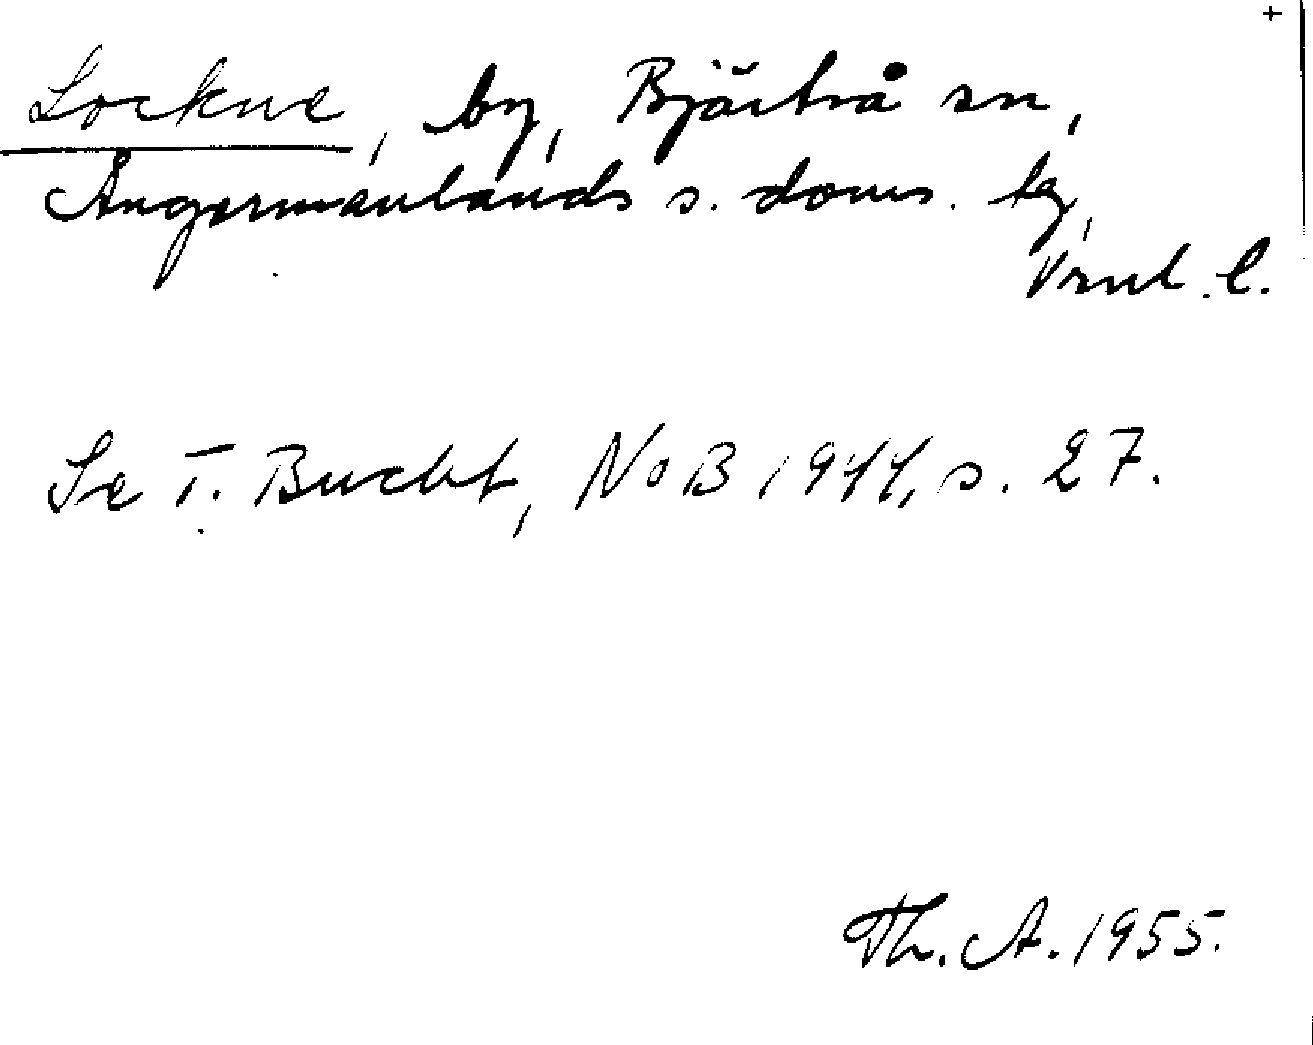 +
Lockne, by, Bjärtrå sn,
Ångermanlands s. doms. tg,
Vrnl. l.
Se T. Bucht, NoB 1944, s. 27.
Th. A. 1955.